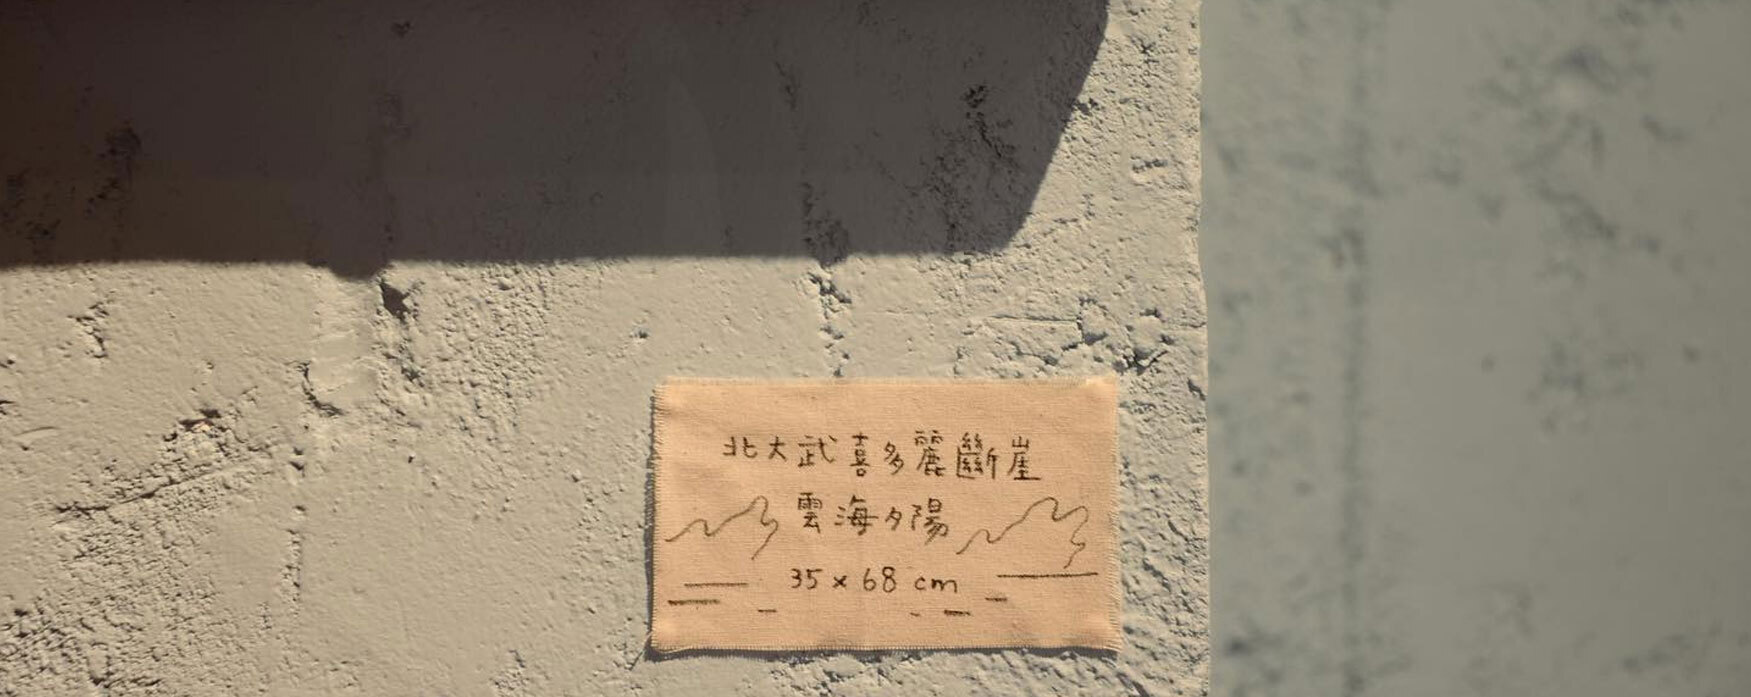 北大武喜多麗斷崖
雲海夕陽
35 x 68 cm